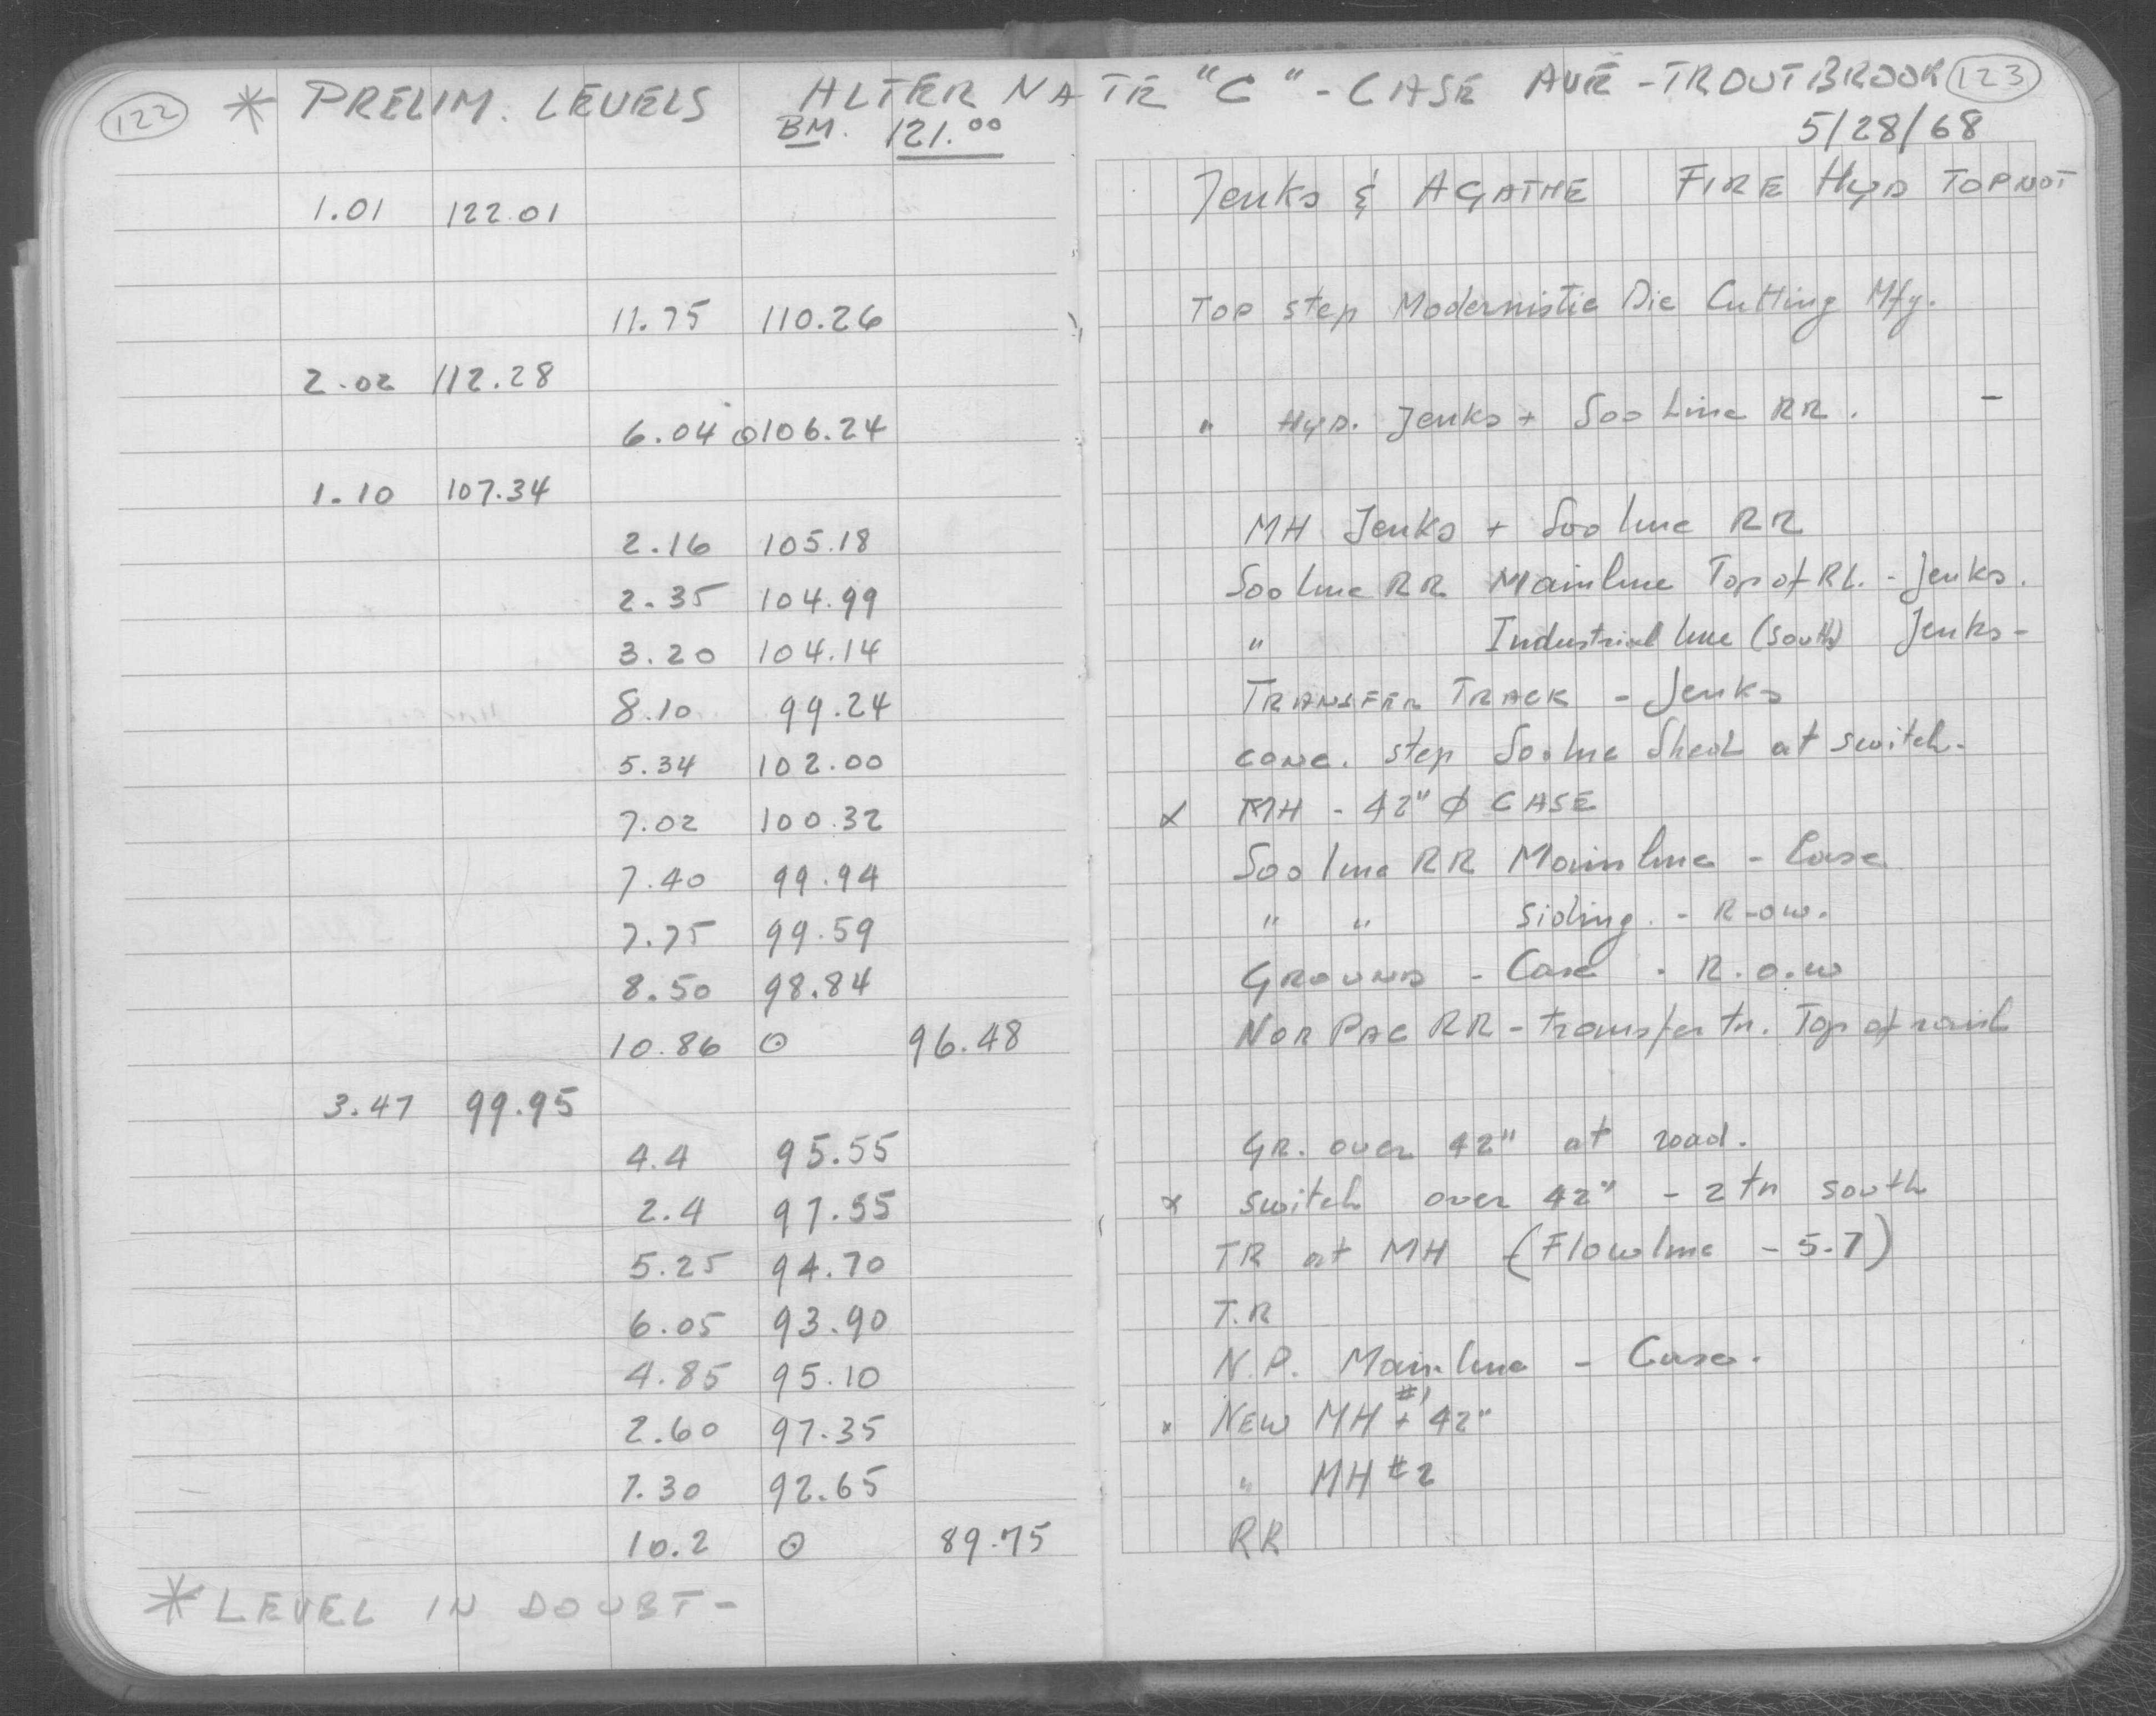 122 * PRELIM. LEVELS ALTERNATE "C" - CASE AVE - TROUTBROOK 123
BM. 121.00 5/28/68
1.01 122.01 Jenks & AGATHE FIRE HYD TOPNOT
11.75 110.26 TOP step Modernistic Die Cutting Mfg.
2.02 112.28
6.04 ⊙106.24 " HYD. Jenks + Soo Line RR. -
1.10 107.34
2.16 105.18 MH Jenks + Soo line RR
2.35 104.99 Soo line RR Mainline Top of RL. - Jenks.
3.20 104.14 " Industrial line (south) Jenks-
8.10 99.24 TRANSFER TRACK - Jenks
5.34 102.00 CONC. step Sooline Shed at switch.
7.02 100.32 x MH - 42" Ø CASE
7.40 99.94 Soo line RR Mainline - Case
7.75 99.59 " " siding. - R-ow.
8.50 98.84 GROUND - Case - R.o.w
10.86 ⊙ 96.48 NOR PAC RR - transfer tr. Top of rail
3.47 99.95
4.4 95.55 GR. over 42" at road.
2.4 97.55 x switch over 42" - 2 tr south
5.25 94.70 TR at MH (Flowline - 5.7)
6.05 93.90 T.R
4.85 95.10 N.P. Mainline - Case.
2.60 97.35 x NEW MH #1 + 42"
7.30 92.65 " MH #2
10.2 ⊙ 89.75 RR
* LEVEL IN DOUBT -